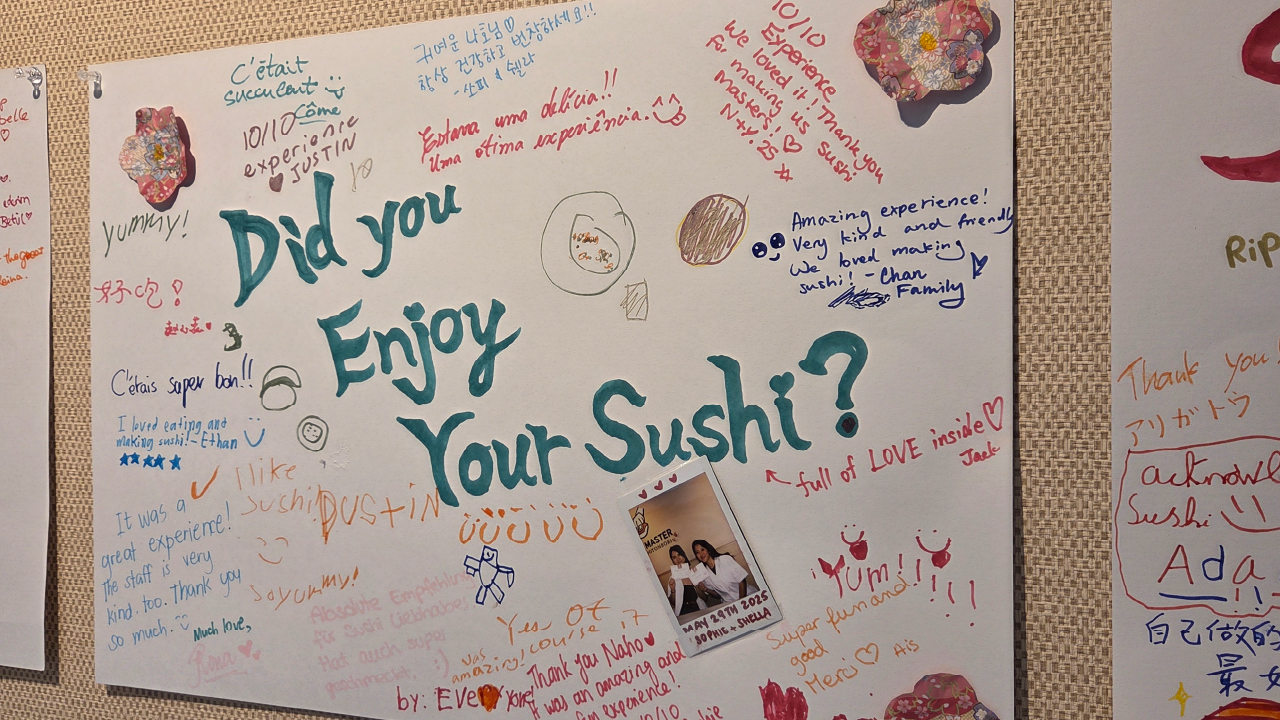 C'était
succulent
Côme
10/10
experience
JUSTIN
귀여운 나호님♡
항상 건강하고 번창하세요!!
-소피 & 쉘라
Estava uma delícia!!
Uma ótima experiência.
10/10
Experience
We loved it! Thank you
for making us sushi
masters! ♡
N+Y. 25
yummy!
好吃!
Did you
Enjoy
Your Sushi?
Amazing experience!
Very kind and friendly
We loved making
sushi! -Chan
Family
C'étais super bon!!
I loved eating and
making sushi! -Ethan
★★★★★
I like
sushi!
DUSTIN
It was a
great experience!
The staff is very
kind, too. Thank you
so much.
Much love,
Soyummy!
Absolute Empfehlung
für Sushi Liebhaber
Hat auch super
geschmeckt. :)
full of LOVE inside♡
Jack
MASTER
MAY 29TH 2025
SOPHIE + SHELLA
Yum!!!!!
Super fun and
good
Merci ♡
Yes, Of
course it
was
amazing!
by: Everyone!
Thank you Naho♥
It was an amazing and
fun experience!
10/10
elle
adorn
Betil♡
the great
Thank you!
アリガトウ
Sushi
Ada!!
自己做的
最好